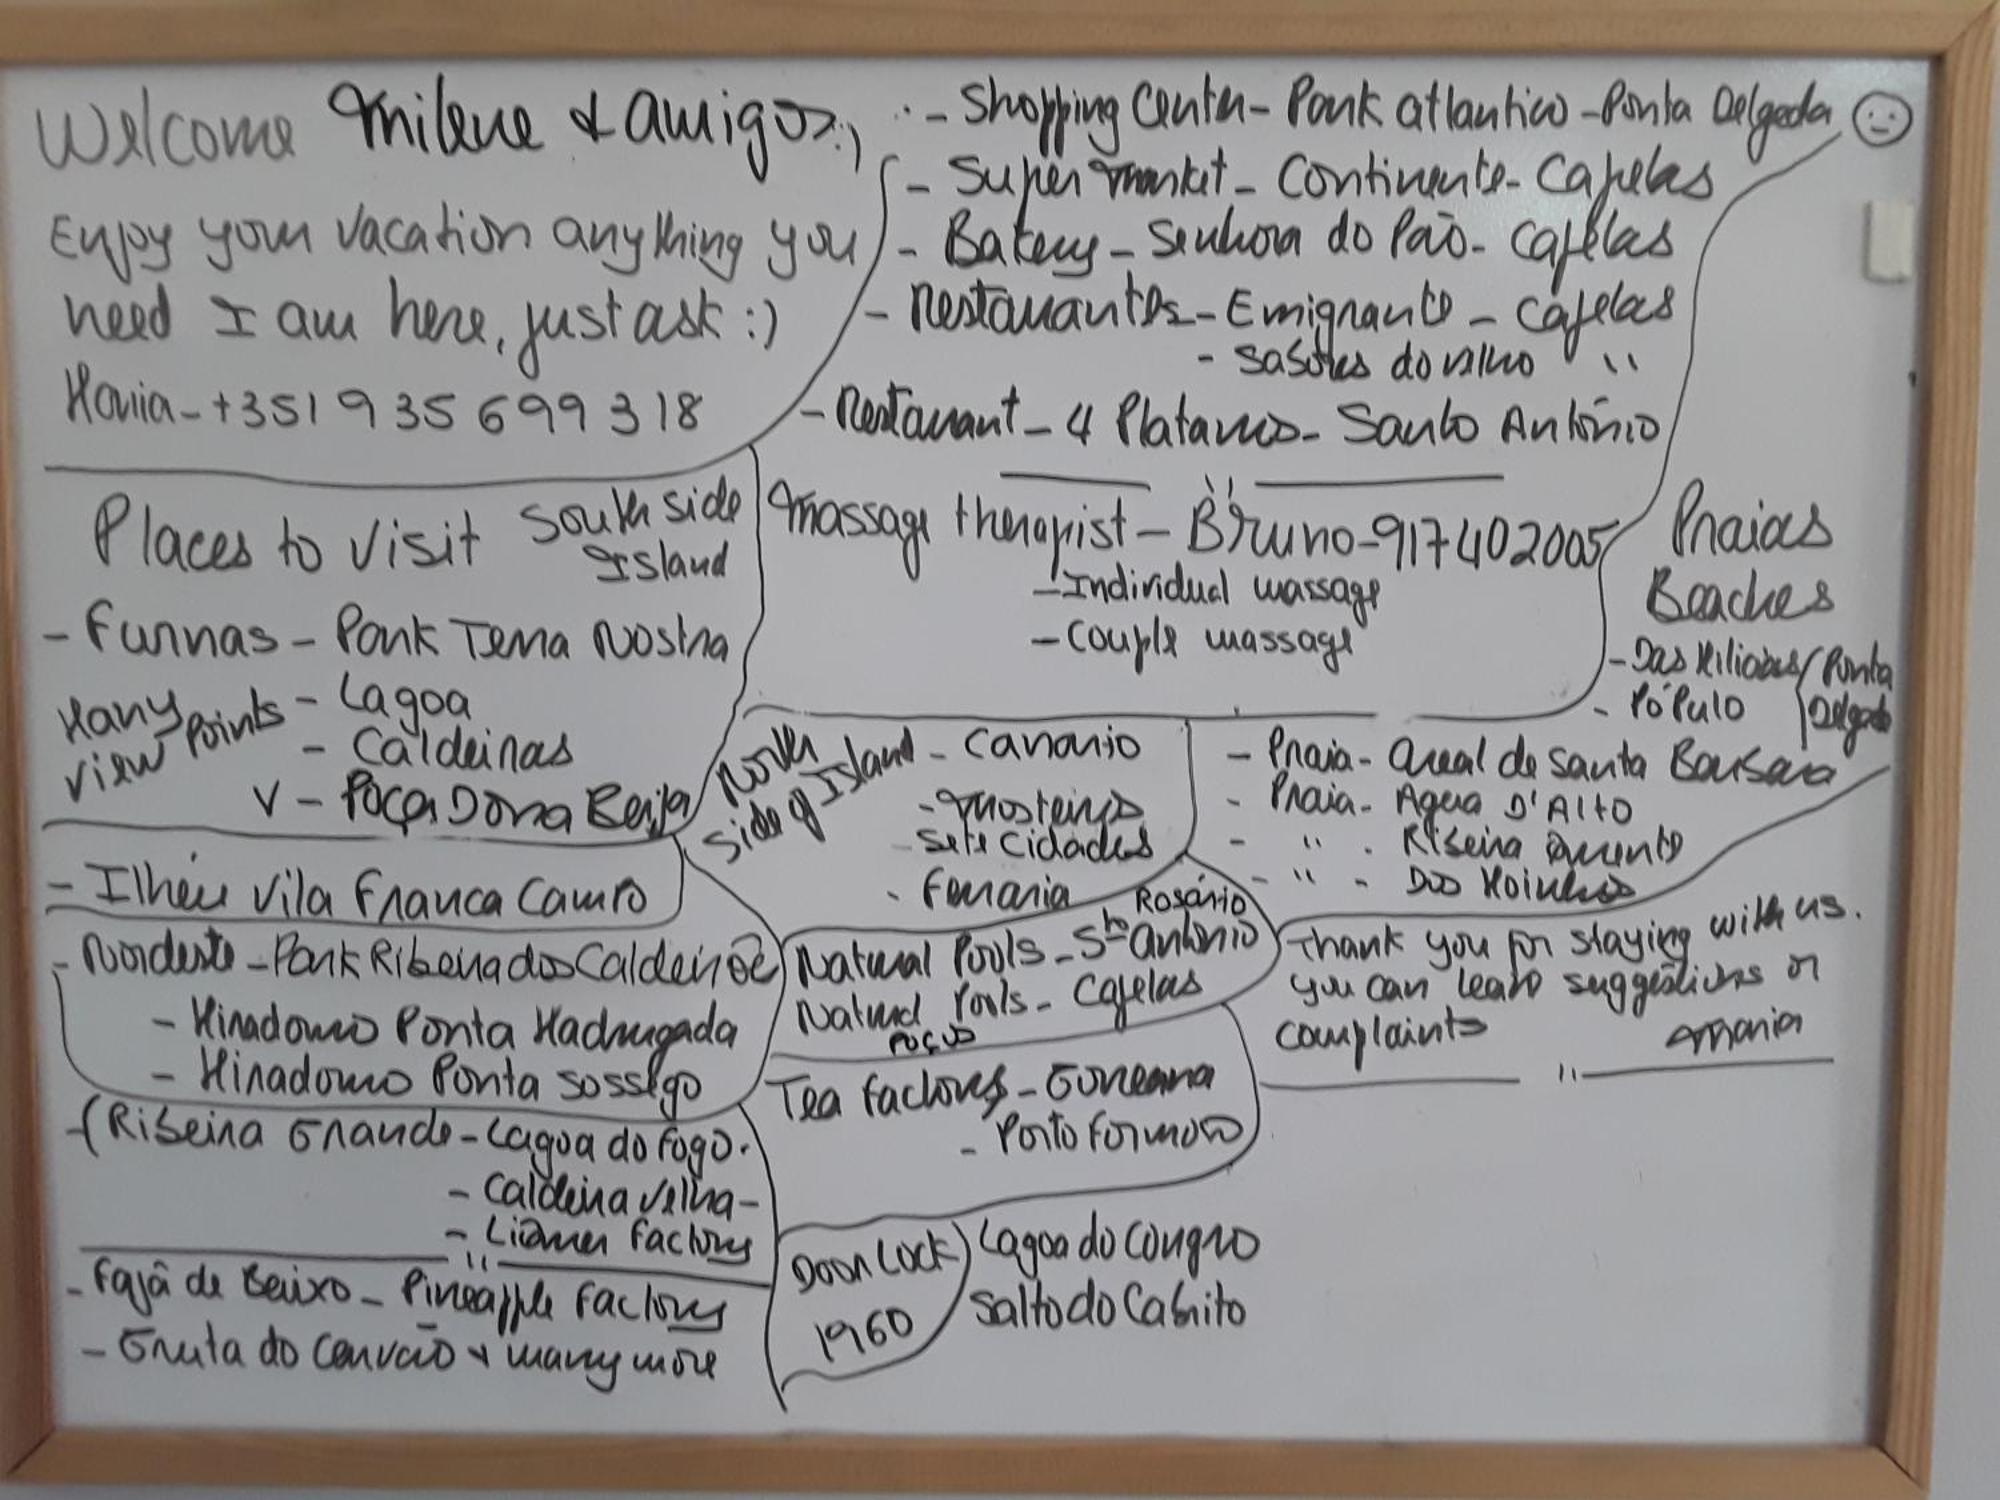 Welcome Milene & amigos :)
Enjoy your vacation anything you
need I am here, just ask :)
Maria - +351 935 699 318
- Shopping Center - Park atlantico - Ponta Delgada
- Super market - Continente - Capelas
- Bakery - Senhora do Pão - Capelas
- Restaurantes - Emigrante - Capelas
- Sabores do velho "
- Restaurant - 4 Platanos - Santo António
Massage therapist - Bruno - 917402005
- Individual massage
- Couple massage
Places to visit South side
Island
- Furnas - Park Terra Nostra
- Lagoa
- Caldeiras
Many
view points
V - Poça Dona Beija
- Ilhéu Vila Franca Campo
- Nordeste - Park Ribeira dos Caldeirões
- Miradouro Ponta Madrugada
- Miradouro Ponta Sossego
- (Ribeira Grande - Lagoa do Fogo.
- Caldeira Velha -
- Liquer factory
"
- Fajã de Baixo - Pineapple factory
- Gruta do Carvão & many more
North
side of Island - Canario
- Mosteiros
Sete Cidades
- Ferraria
Rosário
Natural Pools - Sto António
Natural Pools - Capelas
Poços
Tea factory - Gorreana
- Porto Formoso
Door Lock
1960
Lagoa do Congro
Salto do Cabrito
Praias
Beaches
- Das Milicias / Ponta
- Pópulo / Delgada
- Praia - Areal de Santa Barbara
- Praia - Agua D'Alto
- " - Ribeira Quente
- " - Dos Moinhos
Thank you for staying with us.
you can leave suggestions or
complaints Maria
"